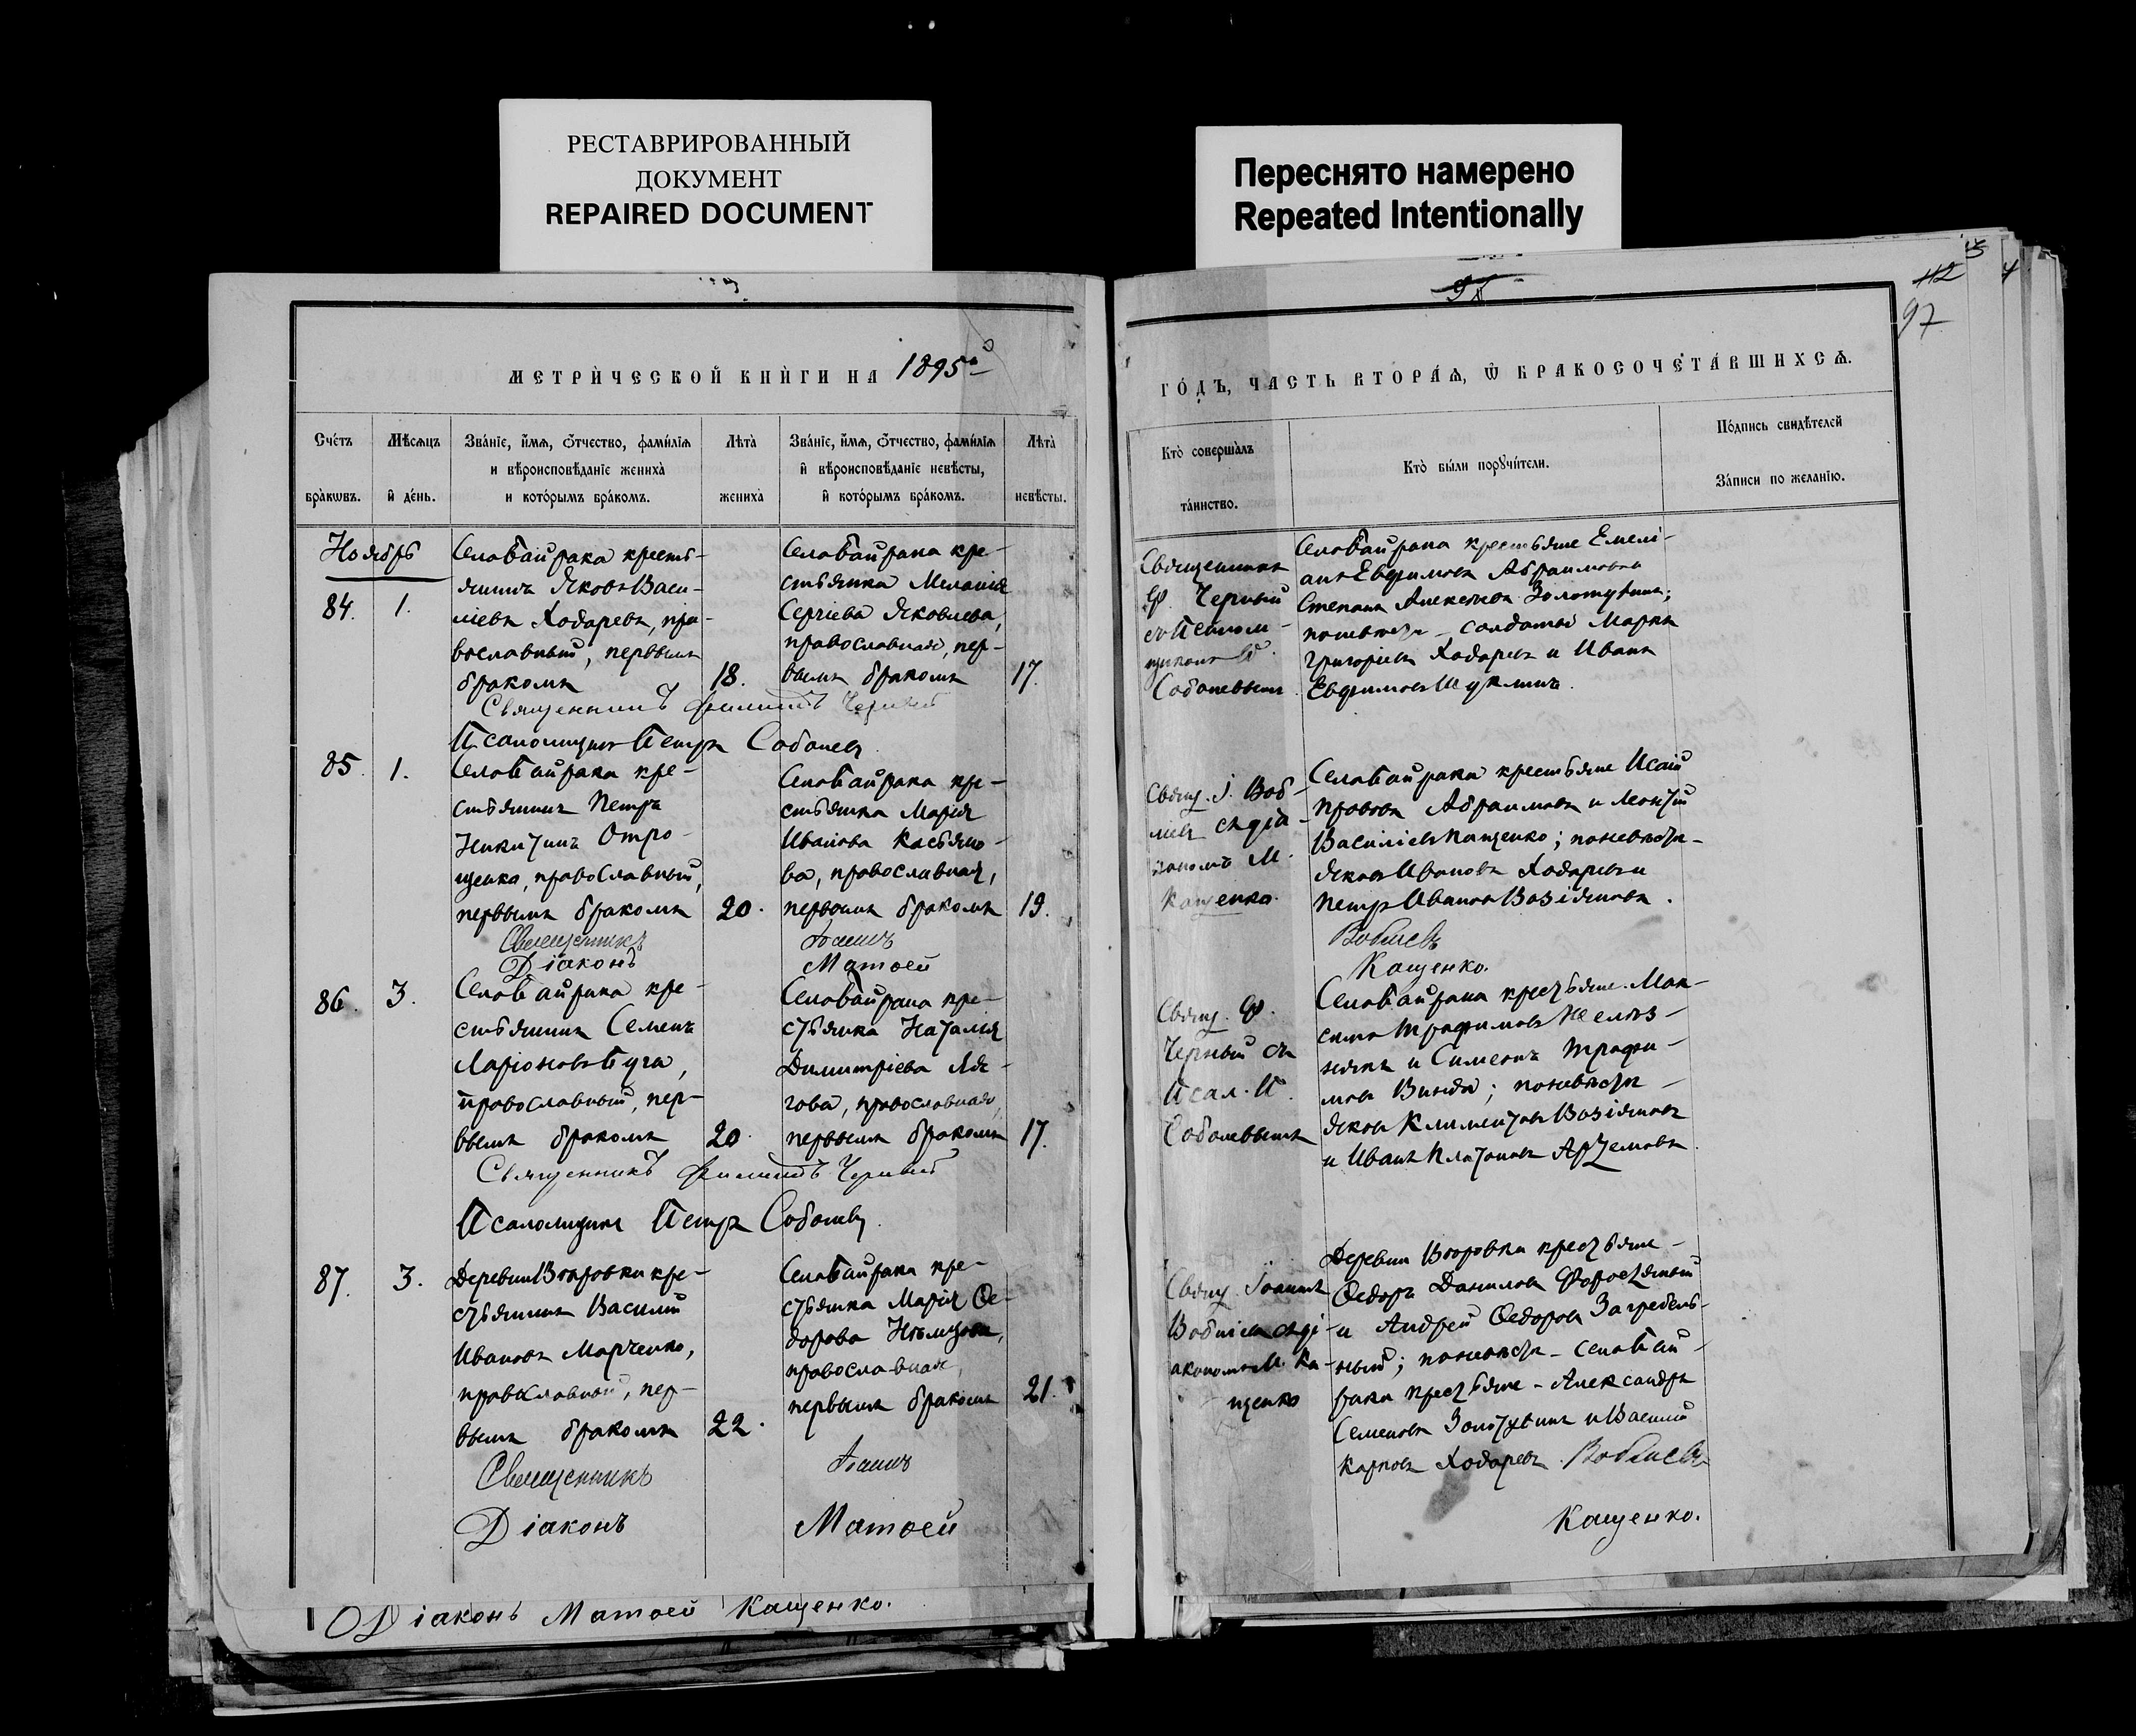 РЕСТАВРИРОВАННЫЙ
ДОКУМЕНТ
REPAIRED DOCUMENT
Переснято намерено
Repeated Intentionally
112
97
МЕТРИ́ЧЕСКОЙ КНИ́ГИ НА 1895
ГО́ДЪ, ЧАСТЬ ВТОРА́Ѧ, Ѿ БРАКОСОЧЕТА́ВШИХСѦ.
Сче́тъ бра́кѡвъ.
Мѣ́сѧцъ и҆ де́нь.
Зва́нїе, и҆́мѧ, ѻ҆́тчество, фами́лїѧ
и вѣроисповѣ́данїе жениха̀
и кото́рымъ бра́комъ.
Лѣта̀ жениха̀
Зва́нїе, и҆́мѧ, ѻ҆́тчество, фами́лїѧ
и҆ вѣроисповѣ́данїе невѣ́сты,
и҆ кото́рымъ бра́комъ.
Лѣта̀ невѣ́сты.
Кто̀ соверша́лъ
та́инство.
Кто̀ бы́ли порꙋчи́тели.
По́дпись свидѣ́телей
За́писи по жела́нїю.
Ноябрь
84.
1.
Села Байрака кресть-
янинъ Яковъ Васи-
ліевъ Ходаревъ, пра-
вославный, первымъ
бракомъ
18.
Села Байрака кре-
стьянка Меланія
Сергіева Яковлева,
православная, пер-
вымъ бракомъ
17.
Священникъ
Ф. Черный
съ Псалом-
щикомъ П.
Соболевымъ.
Села Байрака крестьяне Емелі-
анъ Евфимовъ Абраимовъ и
Степанъ Алексѣевъ Золотухинъ;
по невѣстѣ - солдаты Маркъ
Григоріевъ Ходаревъ и Иванъ
Евфимовъ Шуклинъ.
Священникъ Филиппъ Черный
Псаломщикъ Петръ Соболевъ
85.
1.
Села Байрака кре-
стьянинъ Петръ
Никитинъ Отро-
щенко, православный,
первымъ бракомъ
20.
Села Байрака кре-
стьянка Марія
Иванова Касьяно-
ва, православная,
первымъ бракомъ
19.
Свящ. І. Воб-
лиевъ съ діа-
кономъ М.
Кащенко.
Села Байрака крестьяне Исай
Прововъ Абраимовъ и Леонтій
Василіевъ Кащенко; по невѣстѣ -
Яковъ Ивановъ Ходаревъ и
Петръ Ивановъ Возіяновъ.
Священникъ Іоаннъ
Діаконъ Матѳей
Кащенко.
86.
3.
Села Байрака кре-
стьянинъ Семенъ
Ларіоновъ Буга,
православный, пер-
вымъ бракомъ
20
Села Байрака кре-
стьянка Наталія
Димитріева Ляг-
това, православная,
первымъ бракомъ
17.
Свящ. Ф.
Черный съ
Псал. П.
Соболевымъ
Села Байрака крестьяне Мак-
симъ Трофимовъ
и Симеонъ Трофи-
мовъ; по невѣстѣ -
Яковъ Климентовъ Возіяновъ
и Иванъ Платоновъ Артемовъ
Священникъ Филиппъ Черный
Псаломщикъ Петръ Соболевъ.
87.
3.
кре-
стьянинъ Василій
Ивановъ Марченко,
православный, пер-
вымъ бракомъ
22.
Села Байрака кре-
стьянка Марія Ѳе-
дорова Нѣмцова,
православная,
первымъ бракомъ
21.
Свящ. Іоаннъ
съ ді-
акономъ М. Ка-
щенко
Деревни крестьяне -
Ѳедоръ Даниловъ Форостяный
и Андрей Ѳедоровъ Загребель-
ный; по невѣстѣ - села Бай-
рака крестьяне - Александръ
Семеновъ Золотухинъ и Василій
Карповъ Ходаревъ.
Священникъ Іоаннъ
Діаконъ Матѳей
Кащенко.
Діаконъ Матѳей Кащенко.